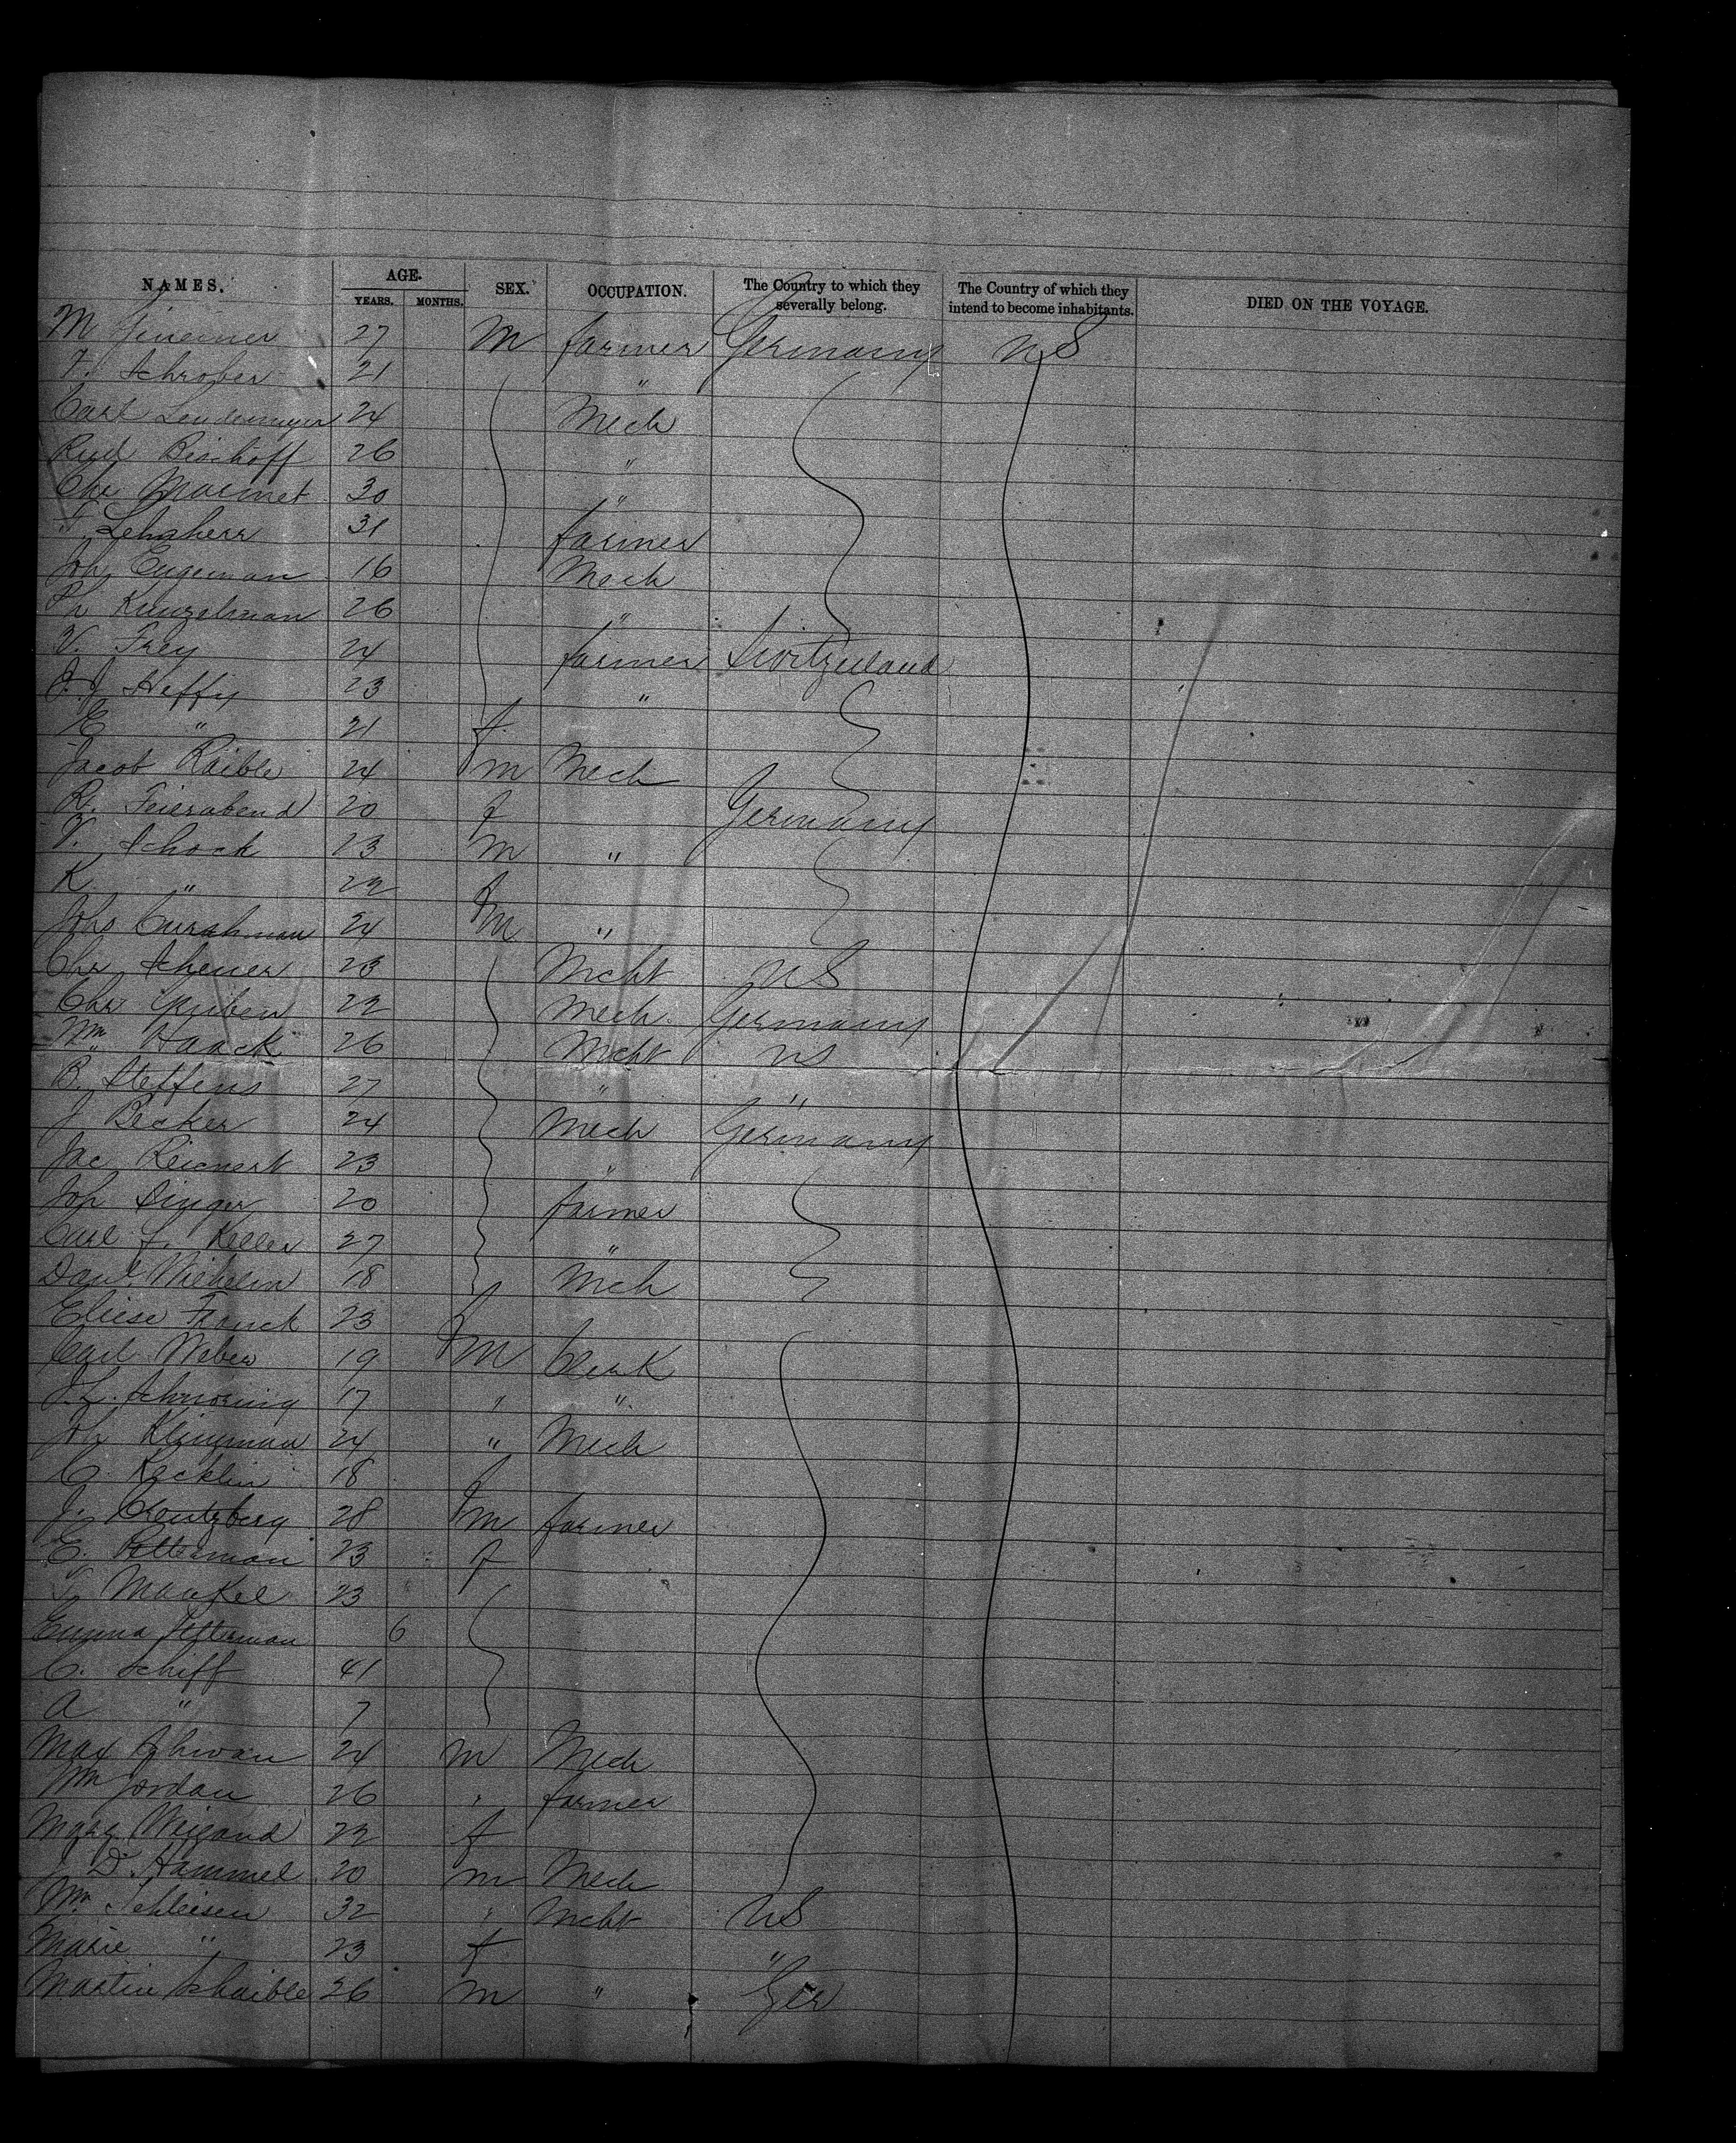 NAMES. AGE. YEARS. MONTHS. SEX. OCCUPATION. The Country to which they severally belong. The Country of which they intend to become inhabitants. DIED ON THE VOYAGE.
M 27 M farmer Germany US
F. Schrober 21 "
Carl 24 Mech
Rud Bischoff 26 "
Chr Marmet 30 "
F. Lehnherr 31 farmer
Joh Eugeman 16 Mech
Kunzelman 26 "
V. Frey 24 farmer Switzerland
J. J Heffy 23 "
E " 21 f
Jacob Raible 24 m Mech
R. Feierabend 20 f Germany
V. Schock 23 m "
K " 22 f
Johs Curshman 24 M "
Chr Scheuer 23 Mcht US
Chr 22 Mech Germany
Wm Haack 26 Mcht US
B. Steffens 27 " "
J Becker 24 Mech Germany
Jac Reichert 23 "
Joh Singer 20 farmer
Carl F. Keller 27 "
Danl Wilhelm 18 Mch
Eliese Franck 23 f
Carl Weber 19 M Clerk
17 " "
Joh Klingman 24 " Mech
C. Kecklin 18 f
J. Creutzberg 28 M farmer
E. 23 f
Mankel 23
Emma 6
C. Schiff 41
A " 7
Max 24 m Mech
Wm Jordan 26 " farmer
Marg Weigand 22 f
D. Hammel 20 m Mech
Wm Schleisen 32 " Mcht US
Marie " 23 f "
Martin Schaible 26 m " Ger